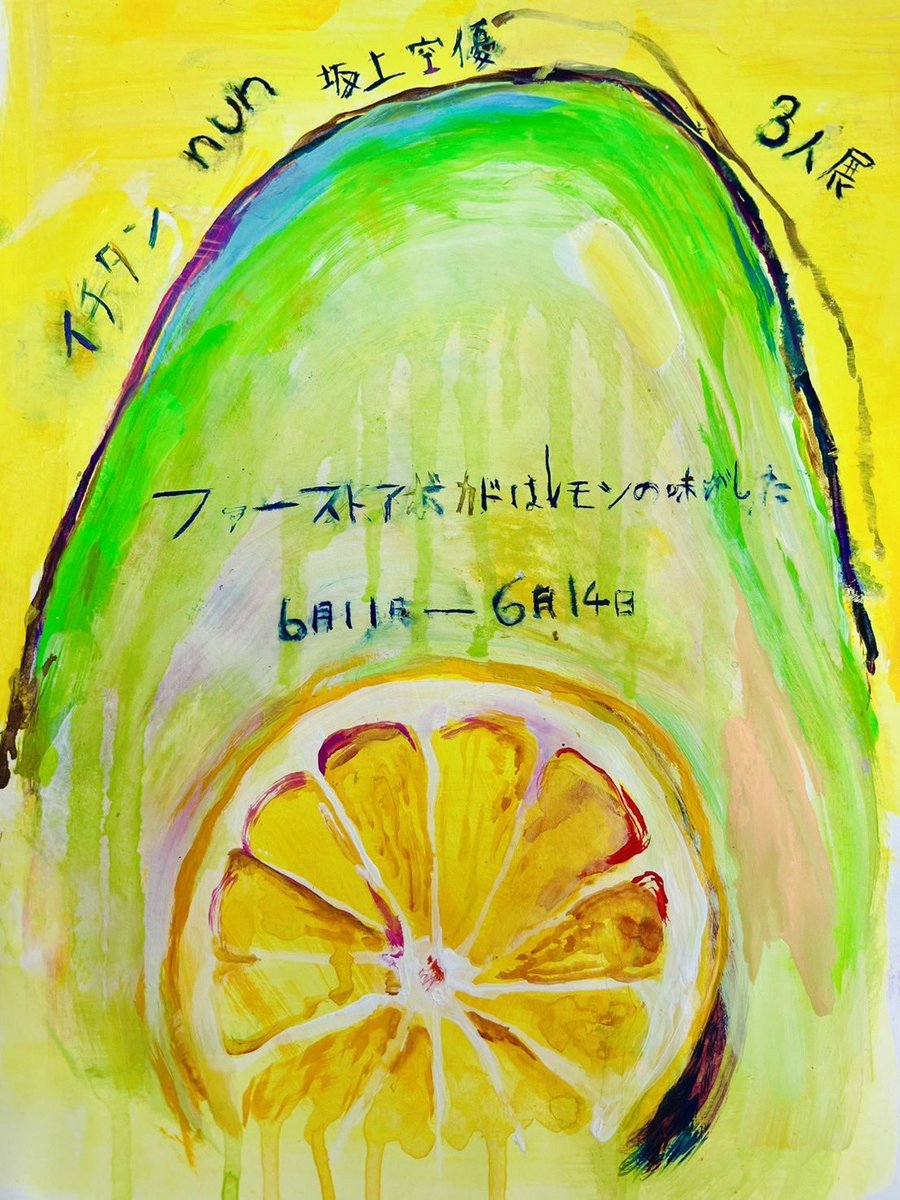 イチタン nun 坂上空優 3人展
ファーストアボカドはレモンの味がした
6月11日—6月14日